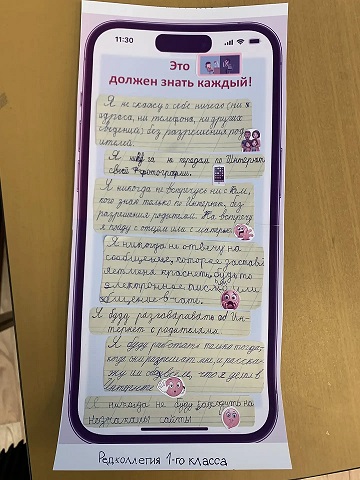 11:30
Это
должен знать каждый!
Я не скажу о себе ничего (ни
адреса, ни телефона, ни других
сведений) без разрешения род
ителей.
Я никогда не передам по Интернет
свой фотографии.
Я никогда не встречусь ни с кем,
кого знаю только по Интернет, без
разрешения родителей. На встречу
я приду с отцом или с матерью
Я никогда не отвечу на
сообщение, которое застав
яет меня краснеть, будь то
электронное письмо или
общение в чате.
Я буду разговаривать об Ин-
тернет с родителями
Я буду работать только тогда,
когда они разрешат мне, и расска-
жу им обо всём, что я делал в
Интернете
Я никогда не буду заходить на
незнакомы сайты
Редколлегия 1-го класса